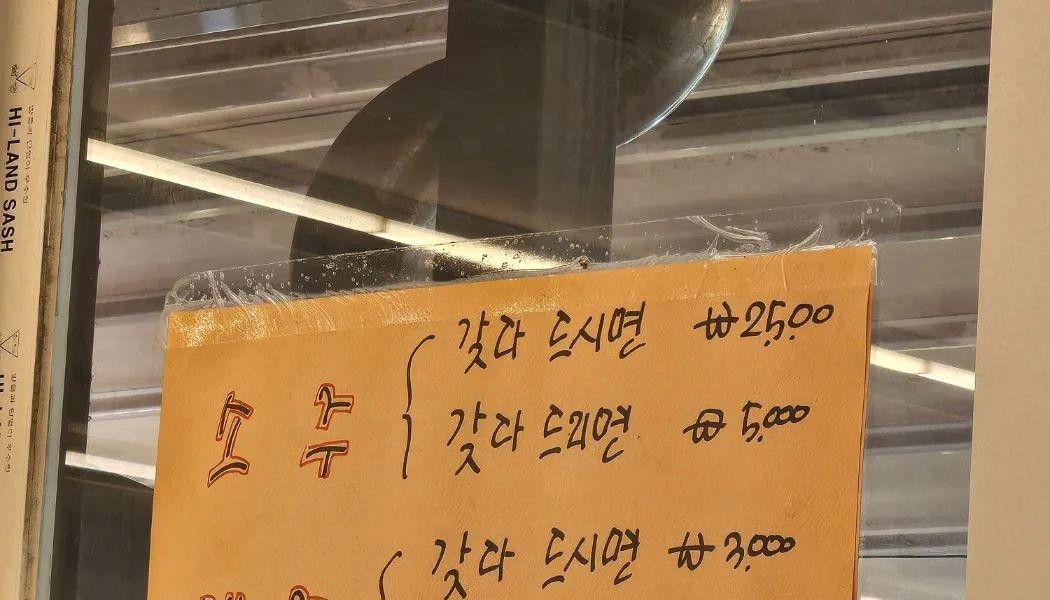 HI-LAND SASH
소주
갖다 드시면 ₩25,00
갖다 드리면 ₩5,000
갖다 드시면 ₩3,000